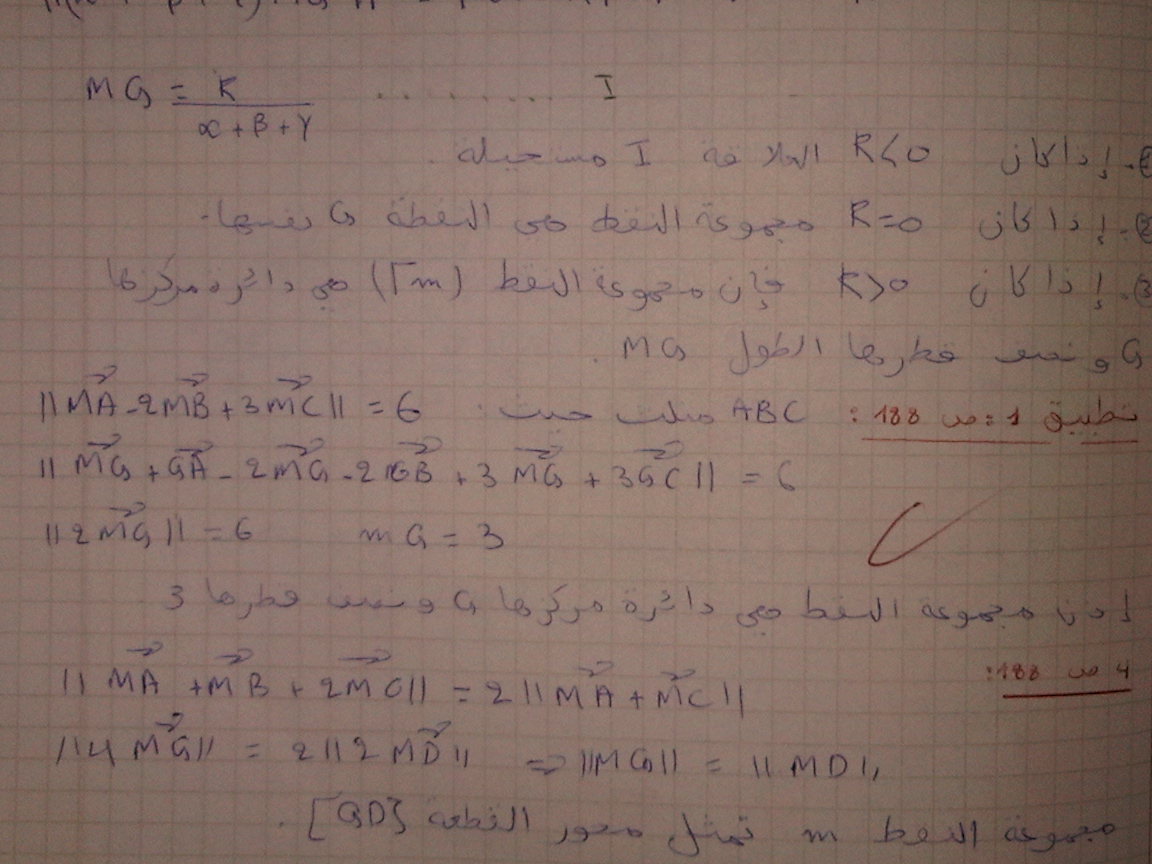 MG = K / α + β + γ ......... I
1- إذا كان K<0 العلاقة I مستحيلة.
2- إذا كان K=0 مجموعة النقط هي النقطة G نفسها.
3- إذا كان K>0 فإن مجموعة النقط (Γm) هي دائرة مركزها
G ونصف قطرها الطول MG.
تطبيق 1: ص 188: ABC مثلث حيث: ||MA - 2MB + 3MC|| = 6
||MG + GA - 2MG - 2GB + 3MG + 3GC|| = 6
||2MG|| = 6 mG = 3
إذن مجموعة النقط هي دائرة مركزها G ونصف قطرها 3
4 ص 188: ||MA + MB + 2MC|| = 2||MA + MC||
||4MG|| = 2||2MD|| ⇒ ||MG|| = ||MD||
مجموعة النقط m تمثل محور القطعة [GD].